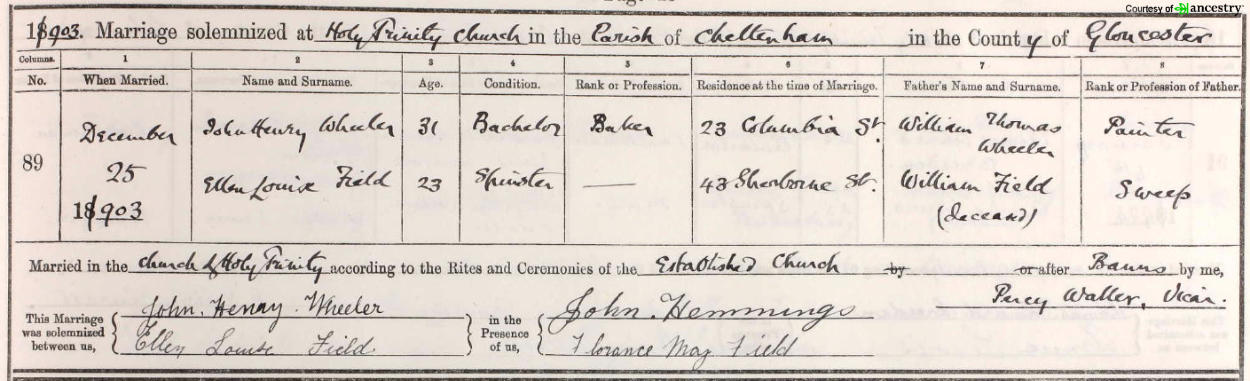 Courtesy of ancestry
1903. Marriage solemnized at Holy Trinity Church in the Parish of Cheltenham in the County of Gloucester
Columns. 1 2 3 4 5 6 7 8
No. When Married. Name and Surname. Age. Condition. Rank or Profession. Residence at the time of Marriage. Father's Name and Surname. Rank or Profession of Father.
89 December 25 1903 John Henry Wheeler 31 Bachelor Baker 23 Columbia St. William Thomas Wheeler Painter
Ellen Louise Field 23 Spinster — 43 Sherborne St. William Field (deceased) Sweep
Married in the Church of Holy Trinity according to the Rites and Ceremonies of the Established Church by or after Banns by me,
Percy Waller, Vicar.
This Marriage was solemnized between us, John Henry Wheeler in the Presence of us, John Hemmings
Ellen Louise Field Florance May Field